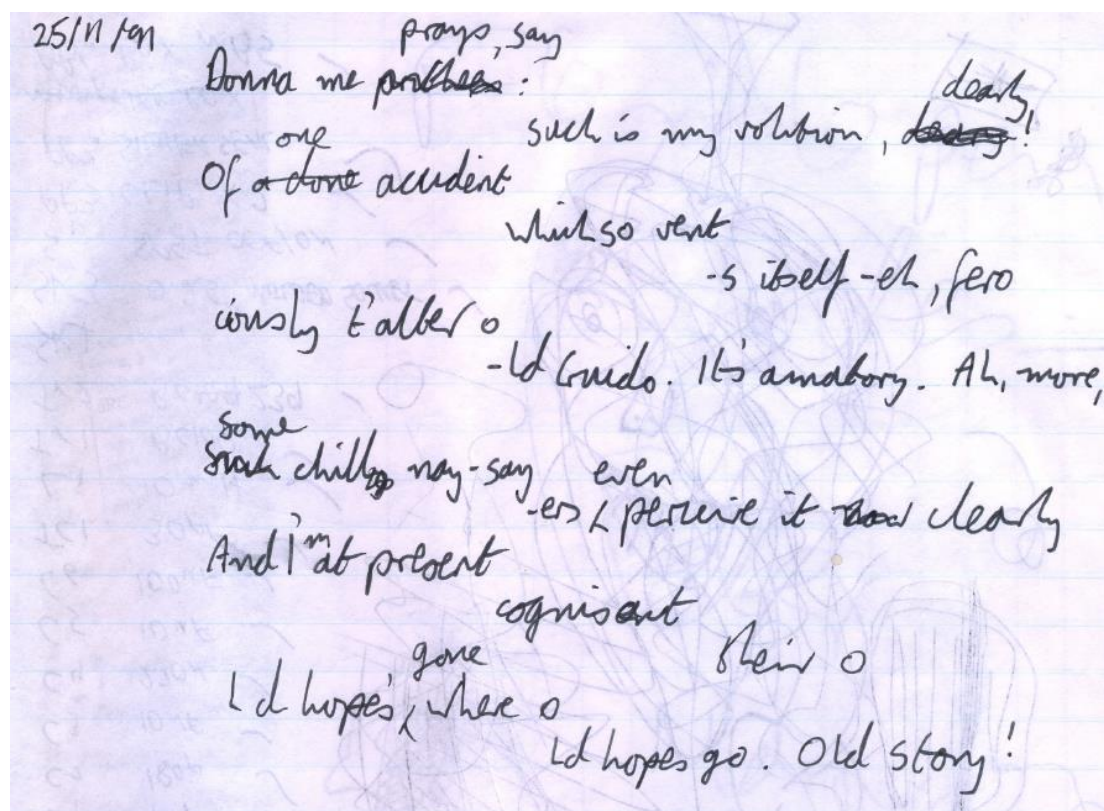 25/11/91
prays, say
Donna me :
dearly,
one such is my volition, !
Of a done accident
which so vent
-s itself -eh, fero
ciously t'alter o
-ld Guido. It's amatory. Ah, more,
some
such chill nay-say even
-ers perceive it clearly
And I'm at present
cognisant
gone their o
Ld hope's, where o
Ld hopes go. Old story!